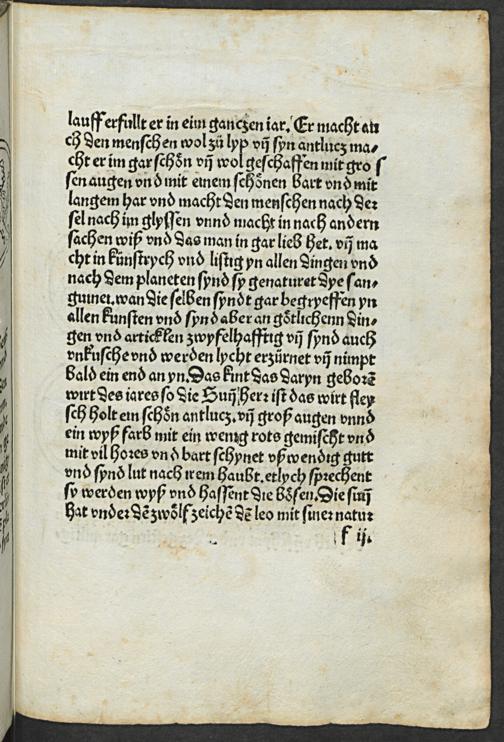 lauff erfüllt er in eim ganczen iar. Er macht au
ch den menschen wol zů lyp vñ syn antlucz ma⸗
cht er im gar schön vñ wol geschaffen mit gro s
sen augen vnd mit einem schönen bart vnd mit
langem har vnd macht den menschen nach der
sel nach im glyssen vnnd macht in nach andern
sachen wiß vnd das man in gar lieb het. vñ ma
cht in künstrych vnd listig yn allen dingen vnd
nach dem planeten synd sy genaturet dye san⸗
guinei. wan die selben syndt gar begryeffen yn
allen kunsten vnd synd aber an götlichenn din⸗
gen vnd articklen zwyfelhafftig vñ synd auch
vnkusche vnd werden lycht erzürnet vñ nimpt
bald ein end an yn. Das kint das daryn geborē
wirt des iares so die Suñ herr ist das wirt fley
sch holt ein schön antlucz. vñ groß augen vnnd
ein wyß farb mit ein wenig rots gemischt vnd
mit vil hores vnd bart schynet vß wendig gutt
vnd synd lut nach irem haubt. etlych sprechent
sy werden wyß vnd hassent die bösen. Die suñ
hat vnder dē zwölf zeichē dē leo mit siner natur
f ij.